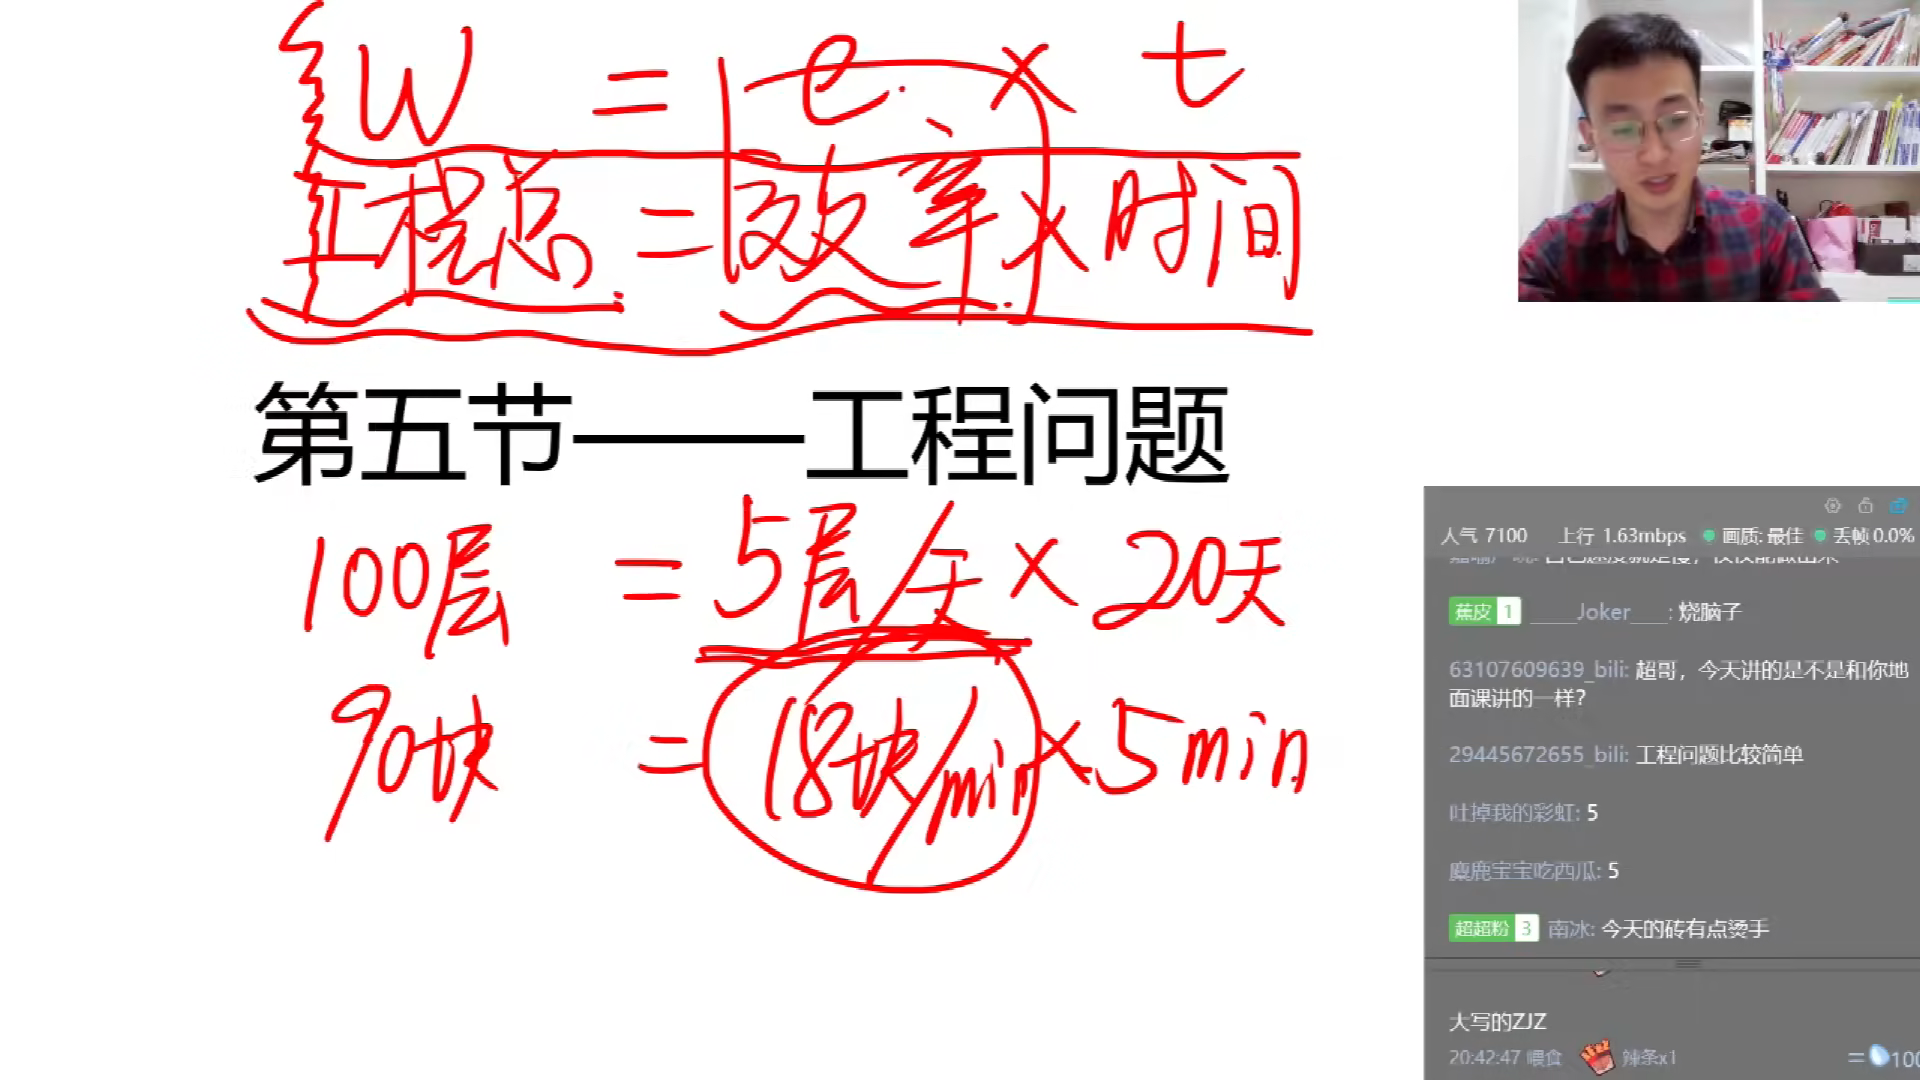 W = e × t
工程总 = 效率 × 时间
第五节——工程问题
100层 = 5层/天 × 20天
90块 = 18块/min × 5min
人气 7100 上行 1.63mbps 画质: 最佳 丢帧 0.0%
蕉皮 1 ____Joker____: 烧脑子
63107609639_bili: 超哥，今天讲的是不是和你地
面课讲的一样？
29445672655_bili: 工程问题比较简单
吐掉我的彩虹: 5
麋鹿宝宝吃西瓜: 5
超超粉 3 南冰: 今天的砖有点烫手
大写的ZJZ
20:42:47 喂食 辣条x1 = 100